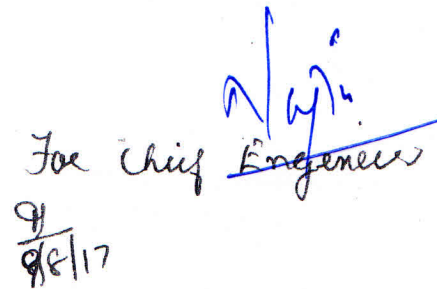 For Chief Engineer
9/8/17